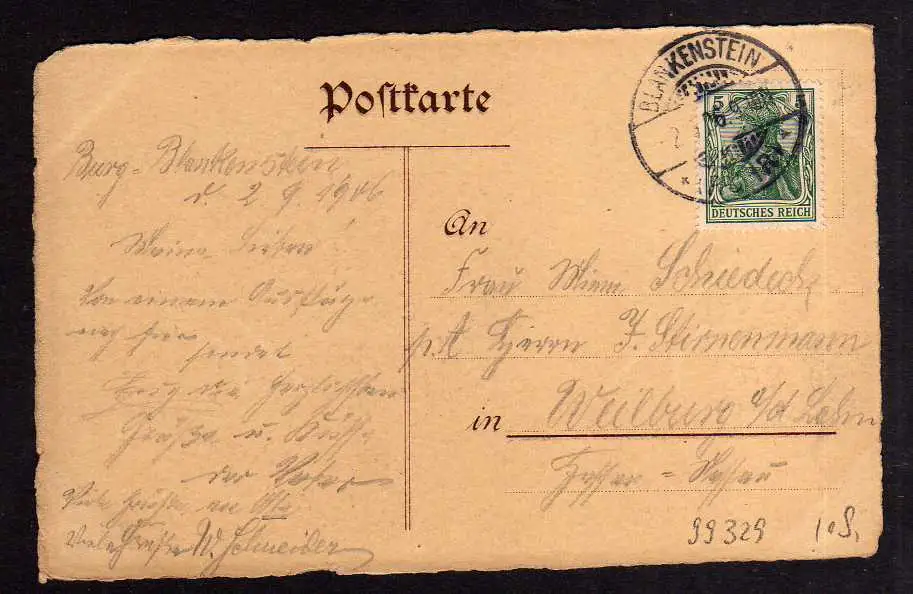 Postkarte
BLANKENSTEIN
5 5
DEUTSCHES REICH
Burg-Blankenstein
d. 2 9. 1906
Meine Lieben!
Von einem Ausfluge
nach hier
sendet
Euch die herzlichsten
Grüße u. Küsse
der Vater
Viele Grüße an
Viele Grüße W. Schneider
An
Frau Wwe
p.A Herrn J. Stirnemann
in Weilburg a/d Lahn
Hessen = Nassau
99329